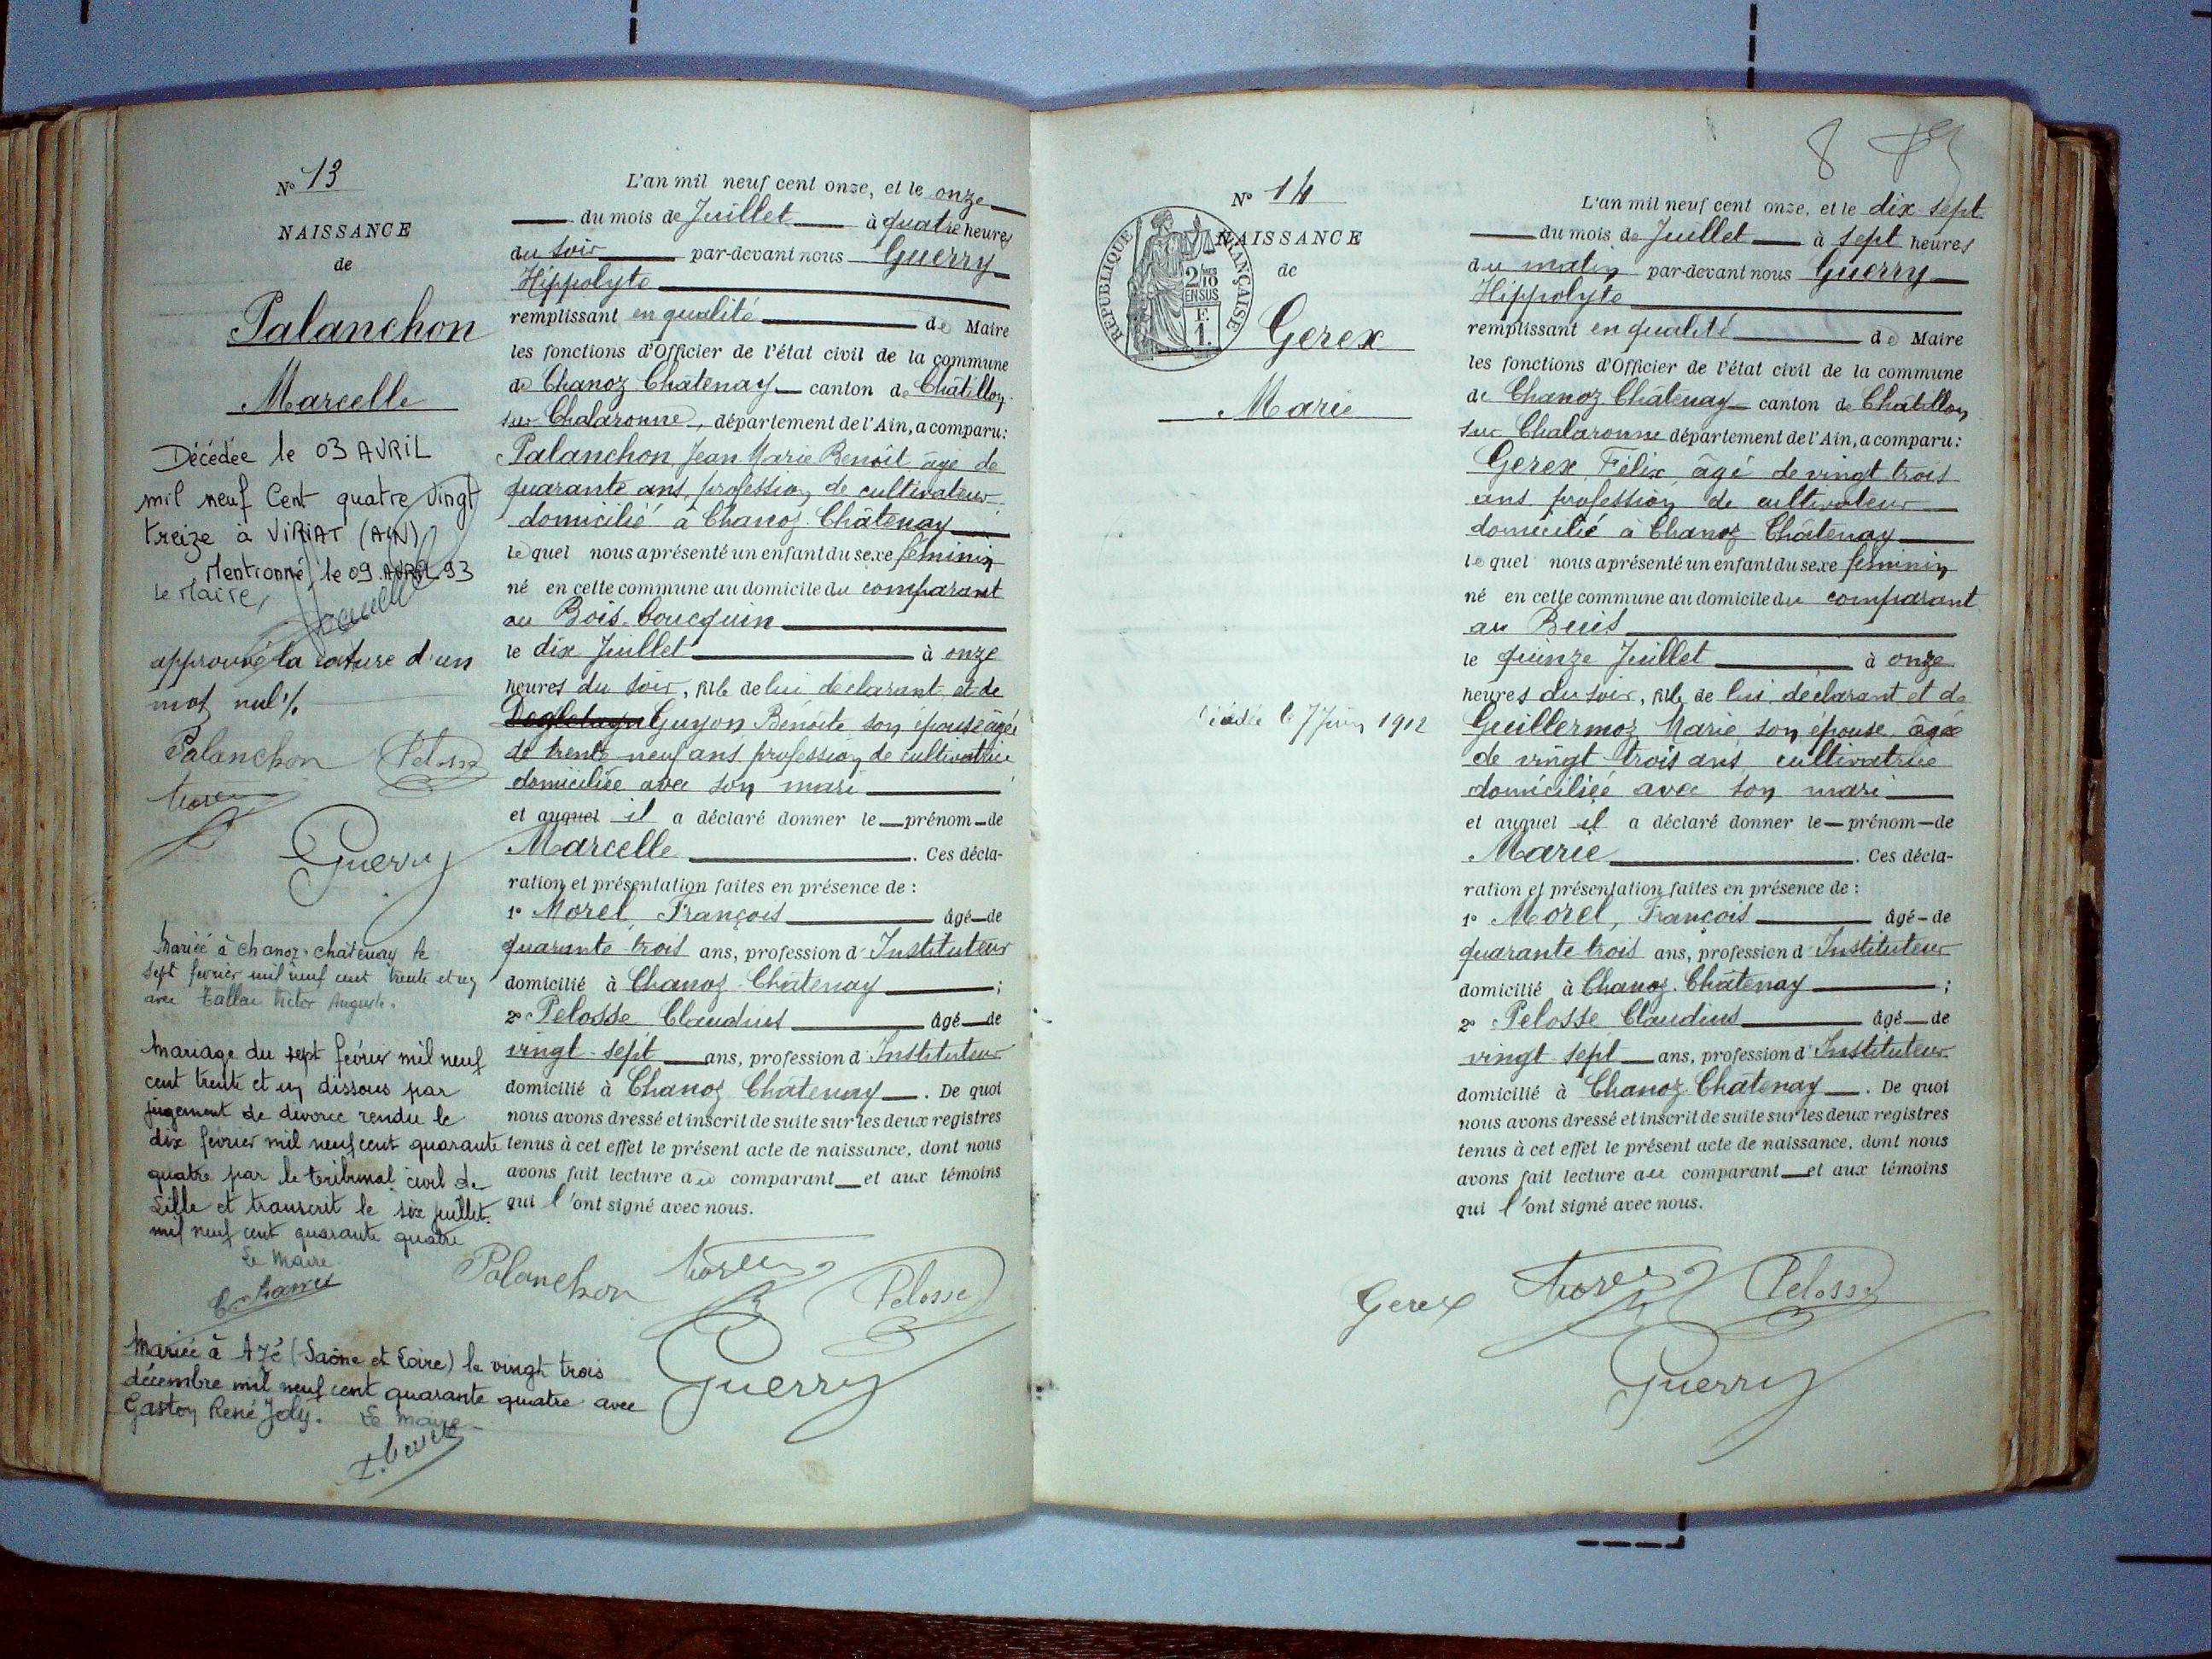 N° 13
NAISSANCE
de
Palanchon
Marcelle
Décédée le 03 AVRIL
mil neuf Cent quatre Vingt
treize à VIRIAT (AIN)
Mentionné le 09 AVRIL 93
Le Maire,
approuvé la rature d'un
mot nul %
Palanchon Pelosse
Morel
Guerry
Mariée à Chanoz-Châtenay le
sept février mil neuf cent trente et un
avec Victor Auguste.
Mariage du sept février mil neuf
cent trente et un dissous par
jugement de divorce rendu le
dix février mil neuf cent quarante
quatre par le tribunal civil de
Lille et transcrit le six juillet
mil neuf cent quarante quatre
Le Maire
Mariée à Azé (Saône et Loire) le vingt trois
décembre mil neuf cent quarante quatre avec
Gaston René Joly. Le Maire
L'an mil neuf cent onze, et le onze
du mois de Juillet à quatre heures
du soir par-devant nous Guerry
Hippolyte
remplissant en qualité de Maire
les fonctions d'Officier de l'état civil de la commune
de Chanoz Châtenay canton de Châtillon
sur Chalaronne, département de l'Ain, a comparu:
Palanchon Jean Marie Benoît âgé de
quarante ans, profession de cultivateur
domicilié à Chanoz-Châtenay
lequel nous a présenté un enfant du sexe féminin
né en cette commune au domicile du comparant
au Bois-Coucquin
le dix Juillet à onze
heures du soir, fille de lui déclarant et de
Guyon Benoîte son épouse âgée
de trente neuf ans profession de cultivatrice
domiciliée avec son mari
et auquel il a déclaré donner le prénom de
Marcelle. Ces décla-
ration et présentation faites en présence de :
1° Morel, François âgé de
quarante trois ans, profession d'Instituteur
domicilié à Chanoz-Châtenay ;
2° Pelosse Claudius âgé de
vingt-sept ans, profession d'Instituteur
domicilié à Chanoz Châtenay. De quoi
nous avons dressé et inscrit de suite sur les deux registres
tenus à cet effet le présent acte de naissance, dont nous
avons fait lecture au comparant et aux témoins
qui l'ont signé avec nous.
Palanchon Morel
Pelosse
Guerry
8
N° 14
NAISSANCE
de
RÉPUBLIQUE FRANÇAISE
2/10
EN SUS
F.
1.
Gerex
Marie
Décédée le 7 Juin 1912
L'an mil neuf cent onze, et le dix sept
du mois de Juillet à sept heures
du matin par-devant nous Guerry
Hippolyte
remplissant en qualité de Maire
les fonctions d'Officier de l'état civil de la commune
de Chanoz Châtenay canton de Châtillon
sur Chalaronne département de l'Ain, a comparu:
Gerex, Félix âgé de vingt trois
ans profession de cultivateur
domicilié à Chanoz-Châtenay
lequel nous a présenté un enfant du sexe féminin
né en cette commune au domicile du comparant
au Buis
le quinze Juillet à onze
heures du soir, fille de lui déclarant et de
Guillermoz Marie son épouse âgée
de vingt trois ans cultivatrice
domiciliée avec son mari
et auquel il a déclaré donner le prénom de
Marie. Ces décla-
ration et présentation faites en présence de :
1° Morel, François âgé de
quarante trois ans, profession d'Instituteur
domicilié à Chanoz-Châtenay ;
2° Pelosse Claudius âgé de
vingt-sept ans, profession d'Instituteur
domicilié à Chanoz Châtenay. De quoi
nous avons dressé et inscrit de suite sur les deux registres
tenus à cet effet le présent acte de naissance, dont nous
avons fait lecture au comparant et aux témoins
qui l'ont signé avec nous.
Gerex Morel Pelosse
Guerry